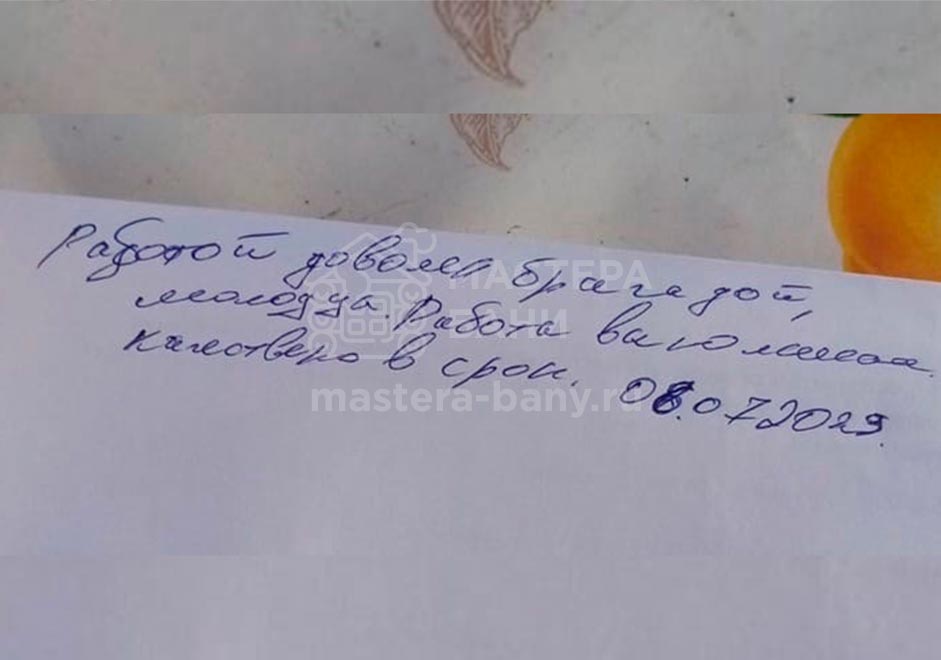 Работой доволен брагадой,
молодцы. Работа
качествено в срок. 08.07.2023.
МАСТЕРА
БАНИ
mastera-bany.ru